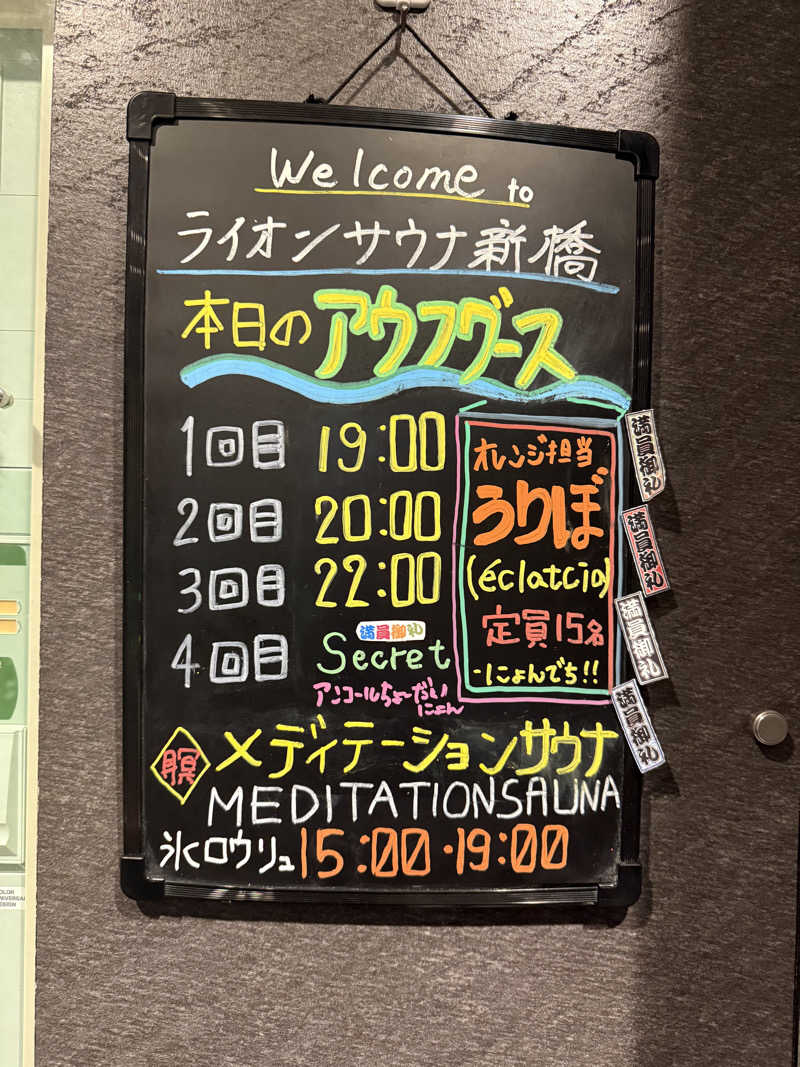 Welcome to
ライオンサウナ新橋
本日の アウフグース
1回目 19:00
2回目 20:00
3回目 22:00
満員御礼
4回目 Secret
アンコールちょーだい
にょん
オレンジ担当
うりぼ
(éclatcio)
定員15名
-にょんでち!!
満員御礼
満員御礼
満員御礼
満員御礼
瞑 メディテーションサウナ
MEDITATIONSAUNA
氷ロウリュ 15:00・19:00